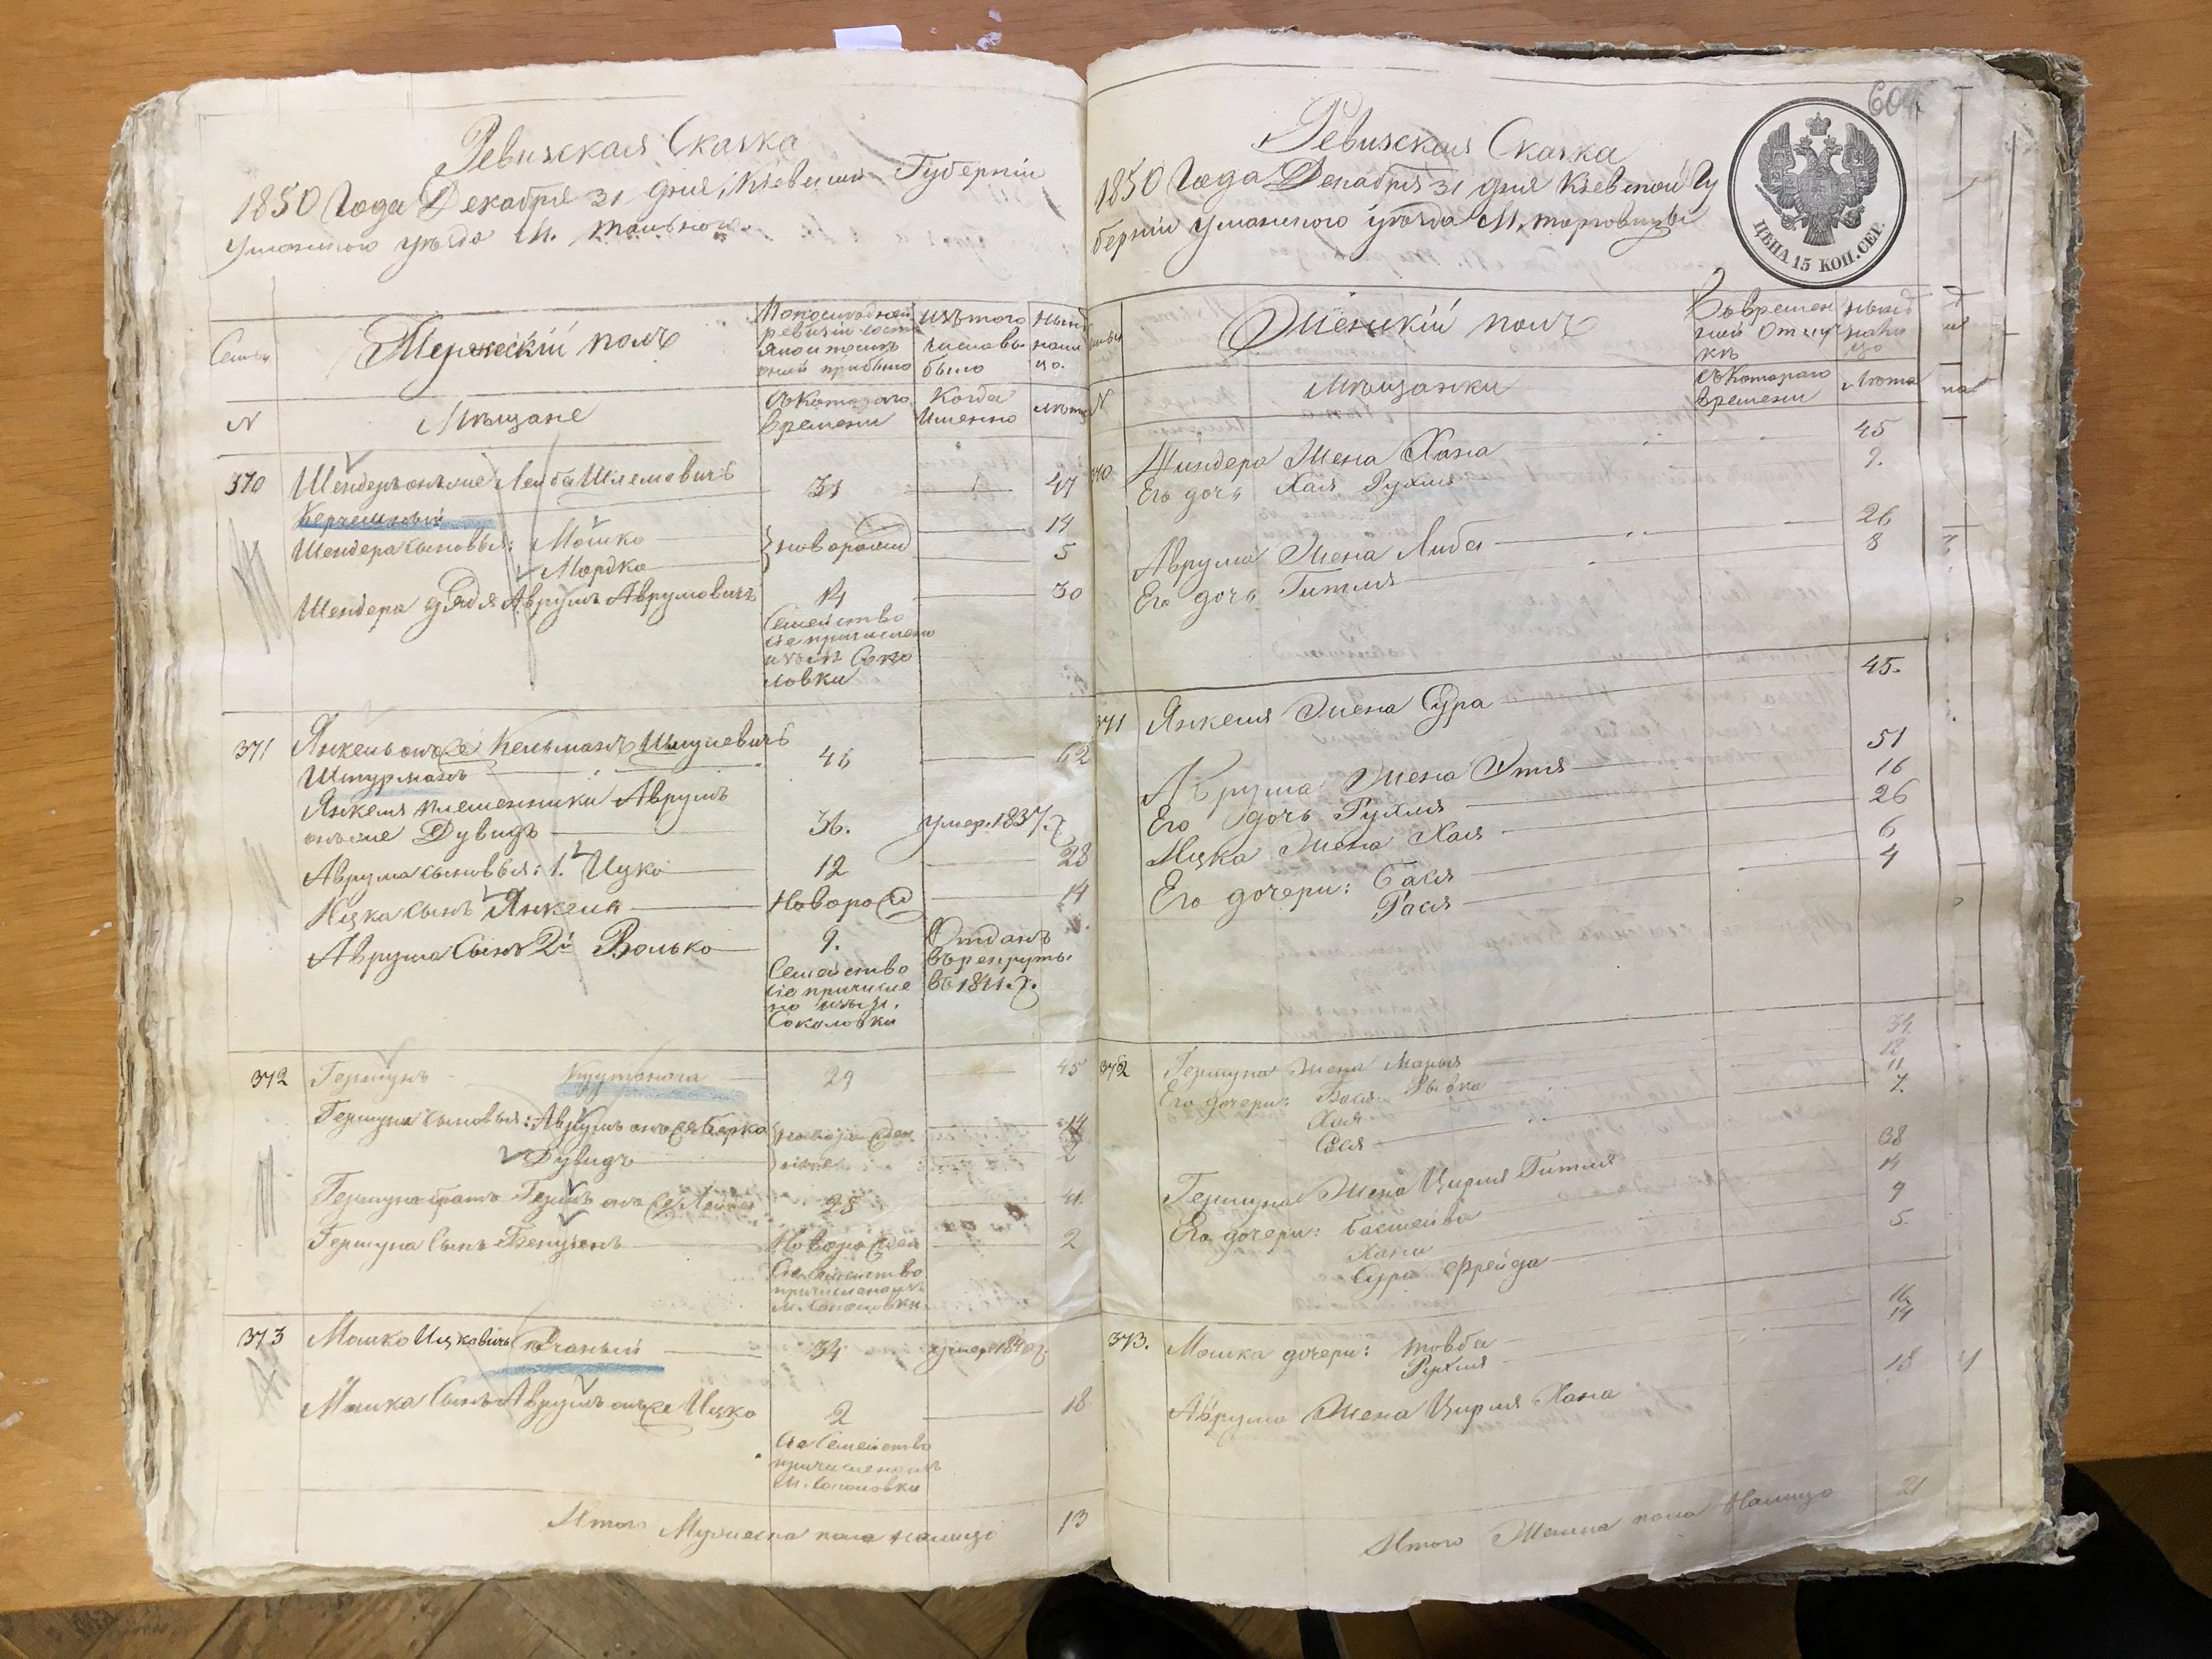 Ревизская Сказка
1850 Года Декабря 31 дня, Кіевской Губерніи
Уманского уѣзда М. Тального.
Семьи
Мужескій полъ
По последней ревизіи состояло и после оной прибыло
изъ того числа выбыло
ныне на лицо.
N
Мѣщане
Съ котораго времени
Когда Именно
Лѣта
370 Шендеръ онъ же Лейба Шлемовичъ 31 47
Шендера сыновья: Мошко новорожд 14
Мордко 5
Шендера дядя Аврумъ Аврумовичъ 14 30
Семейство
сіе причислено
изъ м. Соко
ловки
371 Янкель онъ же Кельманъ Шмулевичъ 46 62
Штурманъ
Янкеля племянники Аврумъ
онъ же Дувидъ 36. умер. 1837. г
Аврума сыновья: 1. Ицко 12 28
Ицка сынъ Янкель Новорожд 14
Аврума Сынъ 2й Волько 9. Отданъ
въ рекруты
въ 1841. г.
Семейство
сіе причисле
но изъ м.
Соколовки
372 Гершунъ 29 45
Гершуна сыновья: Аврумъ онъ же Берко новорожден 14
Дувидъ 2
Гершуна братъ Гершъ онъ же Лейба 25 41.
Гершуна Сынъ Бенционъ Новорожден 2
Сіе Семейство
причислено изъ
м. Соколовки
373 Мошко Ицковичъ 34 умер. 1840 г.
Мошка Сынъ Аврумъ онъ же Ицко 2 18
Сіе Семейство
причислено изъ
м. Соколовки
Итого Мужеска пола налицо 13
604
Ревизская Сказка
1850 Года Декабря 31 дня Кіевской Гу
берніи Уманского уѣзда М. Торговицы
ЦѢНА 15 КОП. СЕР.
Женскій полъ
Во времен
ной отлуч
кѣ
ныне
на ли
цо
N
Мѣщанки
Съ котораго
времени
Лѣта
370 Шендера Жена Хана 45
Его дочь Хая Рухля 9.
Аврума Жена Либа 26
Его дочь Гитля 8
371 Янкеля Жена Сура 45.
Аврума Жена Этля 51
Его дочь Рухля 16
Ицка Жена Хая 26
Его дочери: Бася 6
Рося 4
372 Гершуна Жена Марья 34
Его дочери: Бася Рывка 18
Хая 11
Сося 7.
Гершуна Жена Цирля Гитля 38
Его дочери: Басшейва 14
Хана 9
Сура Фрейда 5.
373. Мошка дочери: Товба 16
Рухля 14
Аврума Жена Цирля Хана 18
Итого Женска пола налицо 21